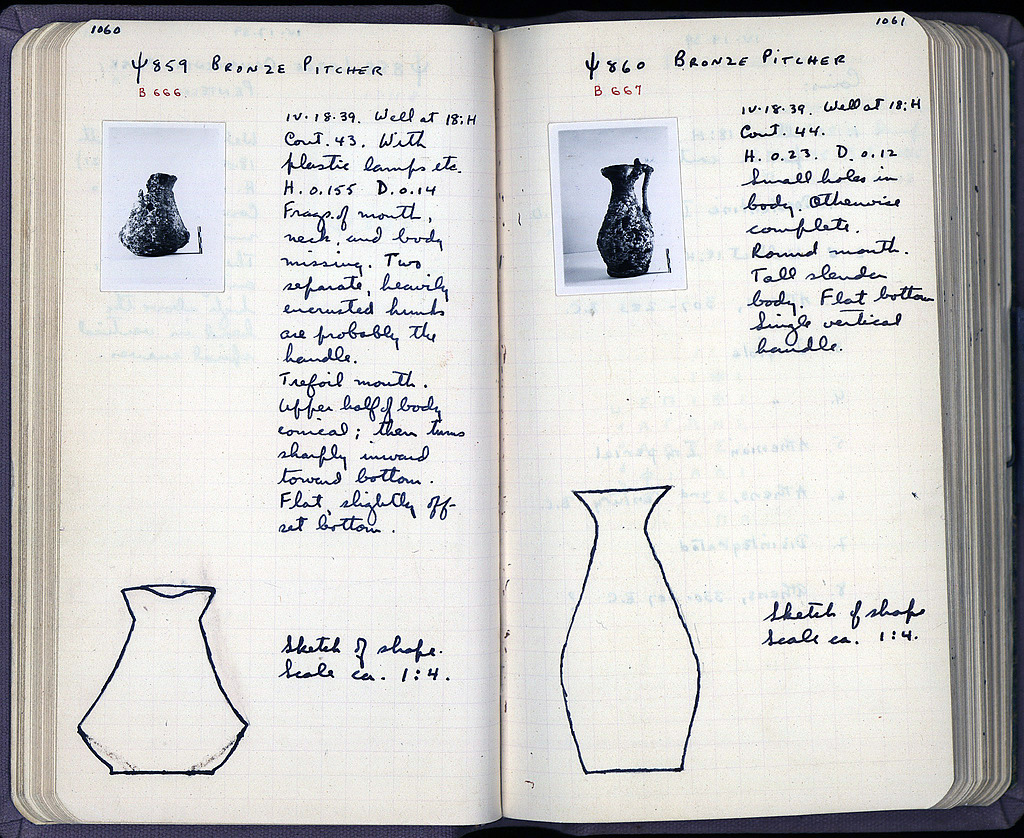 1060
Ψ859 BRONZE PITCHER
B 666
IV·18·39. Well at 18:H
Cont. 43. With
plastic lamps etc.
H. 0.155 D. 0.14
Frags. of mouth,
neck, and body
missing. Two
separate, heavily
encrusted hunks
are probably the
handle.
Trefoil mouth.
Upper half of body
conical; then turns
sharply inward
toward bottom.
Flat, slightly off-
set bottom.
Sketch of shape.
Scale ca. 1:4.
1061
Ψ860 BRONZE PITCHER
B 667
IV·18·39. Well at 18:H
Cont. 44.
H. 0.23. D. 0.12
Small holes in
body. Otherwise
complete.
Round mouth.
Tall slender
body. Flat bottom
Single vertical
handle.
Sketch of shape
Scale ca. 1:4.